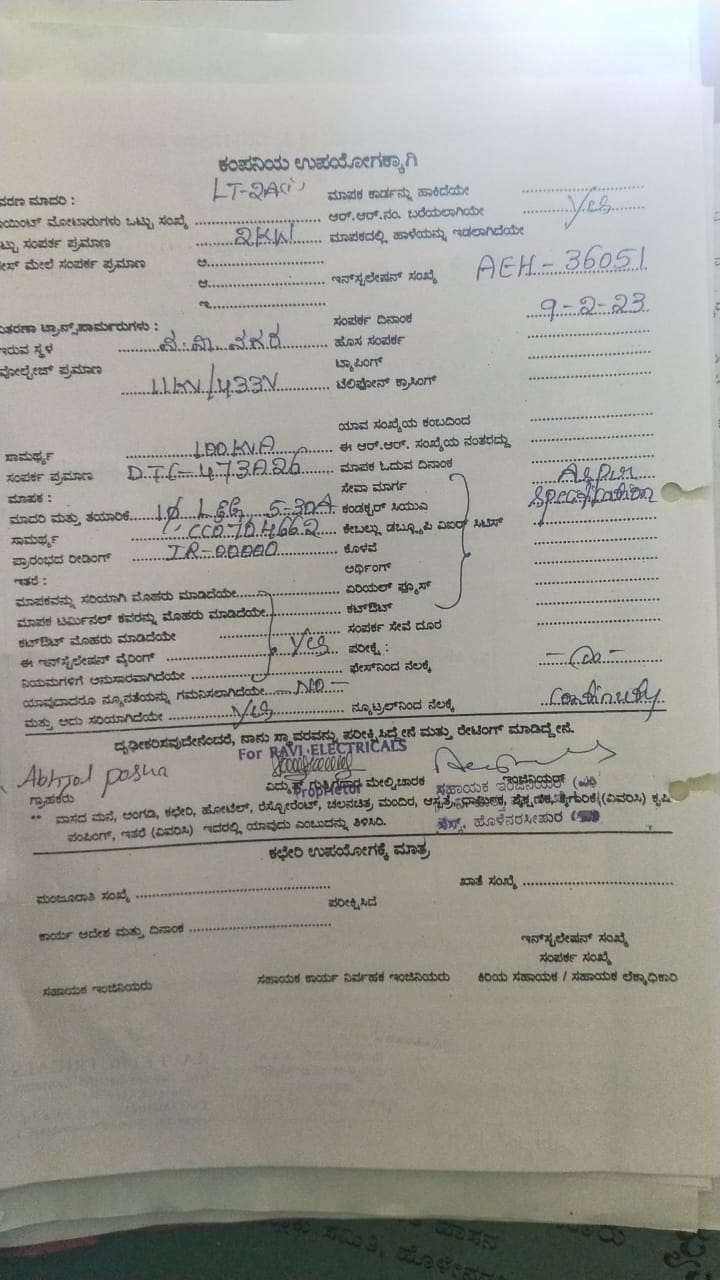 ಕಂಪನಿಯ ಉಪಯೋಗಕ್ಕಾಗಿ
ವರಣ ಮಾದರಿ : LT-2A(i) ಮಾಪಕ ಕಾರ್ಡನ್ನು ಹಾಕಿದೆಯೇ
ಾಯಿಂಟ್ ಮೋಟಾರುಗಳು ಒಟ್ಟು ಸಂಖ್ಯೆ ಆರ್.ಆರ್.ನಂ. ಬರೆಯಲಾಗಿಯೇ Yes
ಟ್ಟು ಸಂಪರ್ಕ ಪ್ರಮಾಣ 2KW ಮಾಪಕದಲ್ಲಿ ಹಾಳೆಯನ್ನು ಇಡಲಾಗಿದೆಯೇ
ೇಸ್ ಮೇಲೆ ಸಂಪರ್ಕ ಪ್ರಮಾಣ ಅ.
ಆ. ಇನ್‌ಸ್ಟಲೇಷನ್ ಸಂಖ್ಯೆ AEH - 36051
ಇ.
ಸಂಪರ್ಕ ದಿನಾಂಕ 9-2-23
ಿತರಣಾ ಟ್ರಾನ್ಸ್‌ಫಾರ್ಮರುಗಳು :
ಇರುವ ಸ್ಥಳ ವ.ವಿ ನಗರ ಹೊಸ ಸಂಪರ್ಕ
ಟ್ಯಾಪಿಂಗ್
ವೋಲ್ಟೇಜ್ ಪ್ರಮಾಣ 11KV/433V ಟೆಲಿಫೋನ್ ಕ್ರಾಸಿಂಗ್
ಯಾವ ಸಂಖ್ಯೆಯ ಕಂಬದಿಂದ
ಸಾಮರ್ಥ್ಯ 100KVA ಈ ಆರ್.ಆರ್. ಸಂಖ್ಯೆಯ ನಂತರದ್ದು
ಸಂಪರ್ಕ ಪ್ರಮಾಣ DTC-473A26 ಮಾಪಕ ಓದುವ ದಿನಾಂಕ
ಮಾಪಕ : ಸೇವಾ ಮಾರ್ಗ As pur
ಮಾದರಿ ಮತ್ತು ತಯಾರಿಕೆ 1Ø L&G 5-30A ಕಂಡಕ್ಟರ್ ಸಿಯುಎ Specification
ಸಾಮರ್ಥ್ಯ CC0704662 ಕೇಬಲ್ಲು ಡಬ್ಲ್ಯೂಪಿ ವಿಐಆರ್ ಸಿಟಿಸ್
ಪ್ರಾರಂಭದ ರೀಡಿಂಗ್ IR-00000 ಕೊಳವೆ
ಇತರೆ : ಅರ್ಥಿಂಗ್
ಮಾಪಕವನ್ನು ಸರಿಯಾಗಿ ಮೊಹರು ಮಾಡಿದೆಯೇ ಏರಿಯಲ್ ಫ್ಯೂಸ್
ಮಾಪಕ ಟರ್ಮಿನಲ್ ಕವರನ್ನು ಮೊಹರು ಮಾಡಿದೆಯೇ ಕಟ್‌ಔಟ್
ಕಟ್‌ಔಟ್ ಮೊಹರು ಮಾಡಿದೆಯೇ ಸಂಪರ್ಕ ಸೇವೆ ದೂರ
ಈ ಇನ್‌ಸ್ಟಲೇಷನ್ ವೈರಿಂಗ್ Yes ಪರೀಕ್ಷೆ :
ನಿಯಮಗಳಿಗೆ ಅನುಸಾರವಾಗಿದೆಯೇ ಫೇಸ್‌ನಿಂದ ನೆಲಕ್ಕೆ - ∞ -
ಯಾವುದಾದರೂ ನ್ಯೂನತೆಯನ್ನು ಗಮನಿಸಲಾಗಿದೆಯೇ No -
ಮತ್ತು ಅದು ಸರಿಯಾಗಿದೆಯೇ Yes ನ್ಯೂಟ್ರಲ್‌ನಿಂದ ನೆಲಕ್ಕೆ Continuety
ದೃಢೀಕರಿಸವುದೇನೆಂದರೆ, ನಾನು ಸ್ಥಾವರವನ್ನು ಪರೀಕ್ಷಿಸಿದ್ದೇನೆ ಮತ್ತು ರೇಟಿಂಗ್ ಮಾಡಿದ್ದೇನೆ.
For RAVI ELECTRICALS
Abhjal pasha
Proprietor
ಗ್ರಾಹಕರು ಮೇಲ್ವಿಚಾರಕ ಇಂಜಿನಿಯರ್
ಸಹಾಯಕ ಇಂಜಿನಿಯರ್
** ವಾಸದ ಮನೆ, ಅಂಗಡಿ, ಕಛೇರಿ, ಹೋಟೆಲ್, ರೆಸ್ಟೋರೆಂಟ್, ಚಲನಚಿತ್ರ, ಮಂದಿರ, ಆಸ್ಪತ್ರೆ, (ವಿವರಿಸಿ) ಕೃಷಿ
ಪಂಪಿಂಗ್, ಇತರೆ (ವಿವರಿಸಿ) ಇದರಲ್ಲಿ ಯಾವುದು ಎಂಬುದನ್ನು ತಿಳಿಸಿರಿ.
ಹೊಳೆನರಸೀಪುರ
ಕಛೇರಿ ಉಪಯೋಗಕ್ಕೆ ಮಾತ್ರ
ಮಂಜೂರಾತಿ ಸಂಖ್ಯೆ ಖಾತೆ ಸಂಖ್ಯೆ
ಪರೀಕ್ಷಿಸಿದೆ
ಕಾರ್ಯ ಆದೇಶ ಮತ್ತು ದಿನಾಂಕ
ಇನ್‌ಸ್ಟಲೇಷನ್ ಸಂಖ್ಯೆ
ಸಂಪರ್ಕ ಸಂಖ್ಯೆ
ಸಹಾಯಕ ಇಂಜಿನಿಯರು ಸಹಾಯಕ ಕಾರ್ಯ ನಿರ್ವಾಹಕ ಇಂಜಿನಿಯರು ಕಿರಿಯ ಸಹಾಯಕ / ಸಹಾಯಕ ಲೆಕ್ಕಾಧಿಕಾರಿ